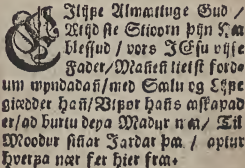 Eilijse Almættuge Gud /
Wijd ste Stioorn þijn Har
blessud / vors JEsu vijse
Fader / Mañeñ lietst fordo-
um myndadañ / med Sælu og Lijse
giædder Hañ / Vijpør Hañs æskapad
er / ad burtu deya Madur nær / Til
Moodur siñar Jardar þar / aptur
hverfa nær fer hier fra.